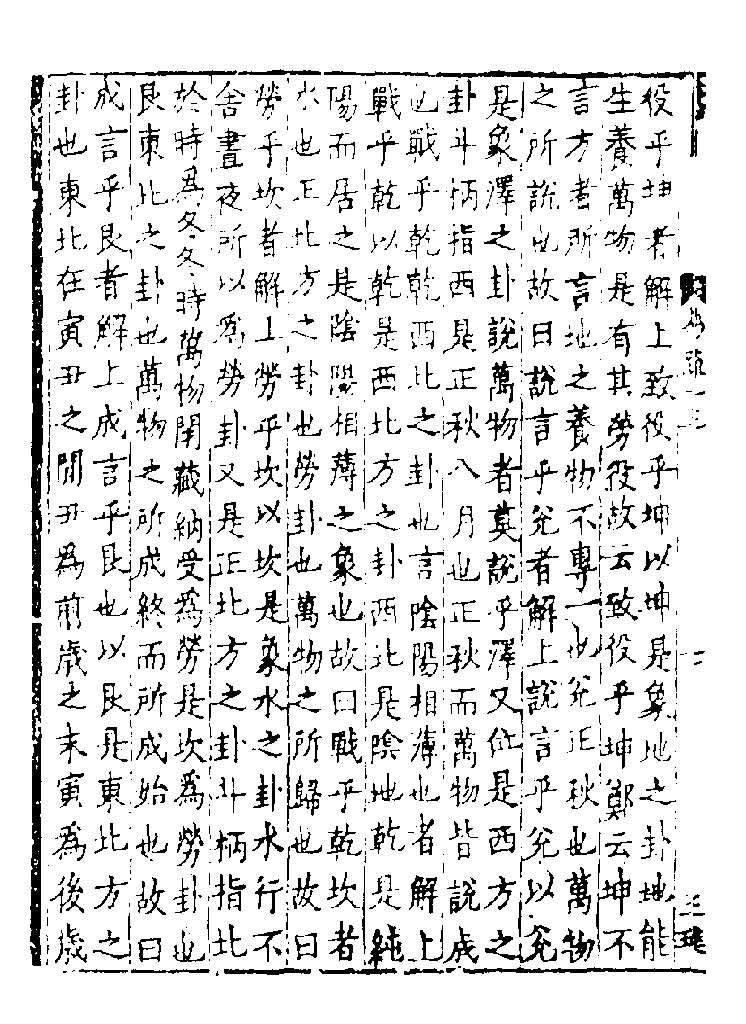 役乎坤者解上致役乎坤以坤是象地之卦地能
生養萬物是有其勞役故云致役乎坤鄭云坤不
言方者所言地之養物不專一也兊正秋也萬物
之所說也故曰說言乎兊者解上說言乎兊以兊
是象澤之卦說萬物者莫說乎澤又位是西方之
卦斗柄指西是正秋八月也正秋而萬物皆說成
也戰乎乾乾西北之卦也言陰陽相薄也者解上
戰乎乾以乾是西北方之卦西北是陰地乾是純
陽而居之是陰陽相薄之象也故曰戰乎乾坎者
水也正北方之卦也勞卦也萬物之所歸也故曰
勞乎坎者解上勞乎坎以坎是象水之卦水行不
舍晝夜所以爲勞卦又是正北方之卦斗柄指北
於時爲冬冬時萬物閉藏納受爲勞是坎爲勞卦也
艮東北之卦也萬物之所成終而所成始也故曰
成言乎艮者解上成言乎艮也以艮是東北方之
卦也東北在寅丑之閒丑爲前歲之末寅爲後歲